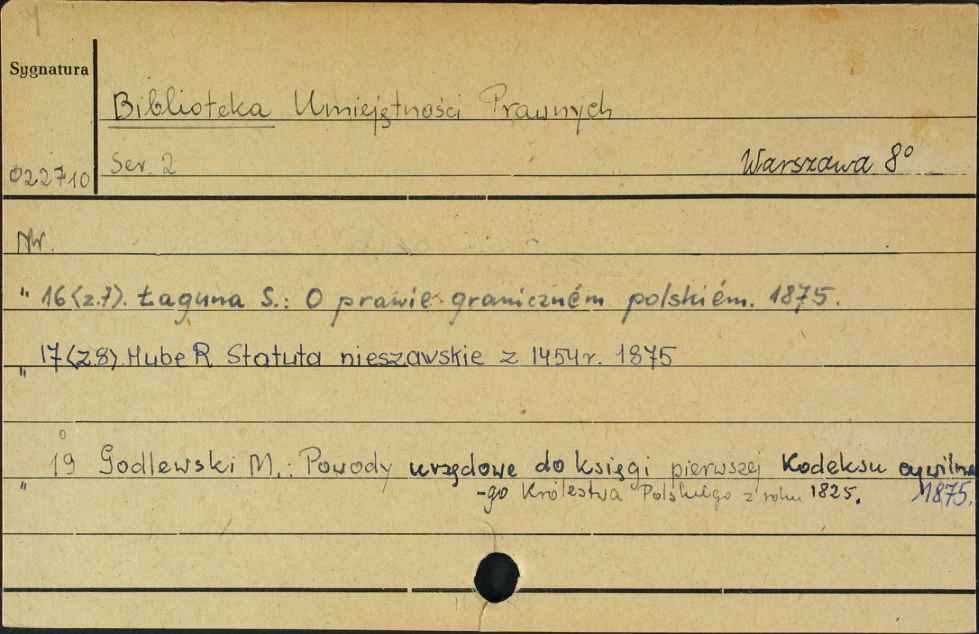 Sygnatura
Biblioteka Umiejętności Prawnych
022710
Ser. 2
Warszawa 8°
Nr.
" 16 (z.7). Łaguna S.: O prawie graniczném polskiém. 1875.
" 17 (z.8). Hube R Statuta nieszawskie z 1454 r. 1875
" 19 Godlewski M.: Powody urzędowe do księgi pierwszej Kodeksu cywilne
-go Królestwa Polskiego z roku 1825. 1875.